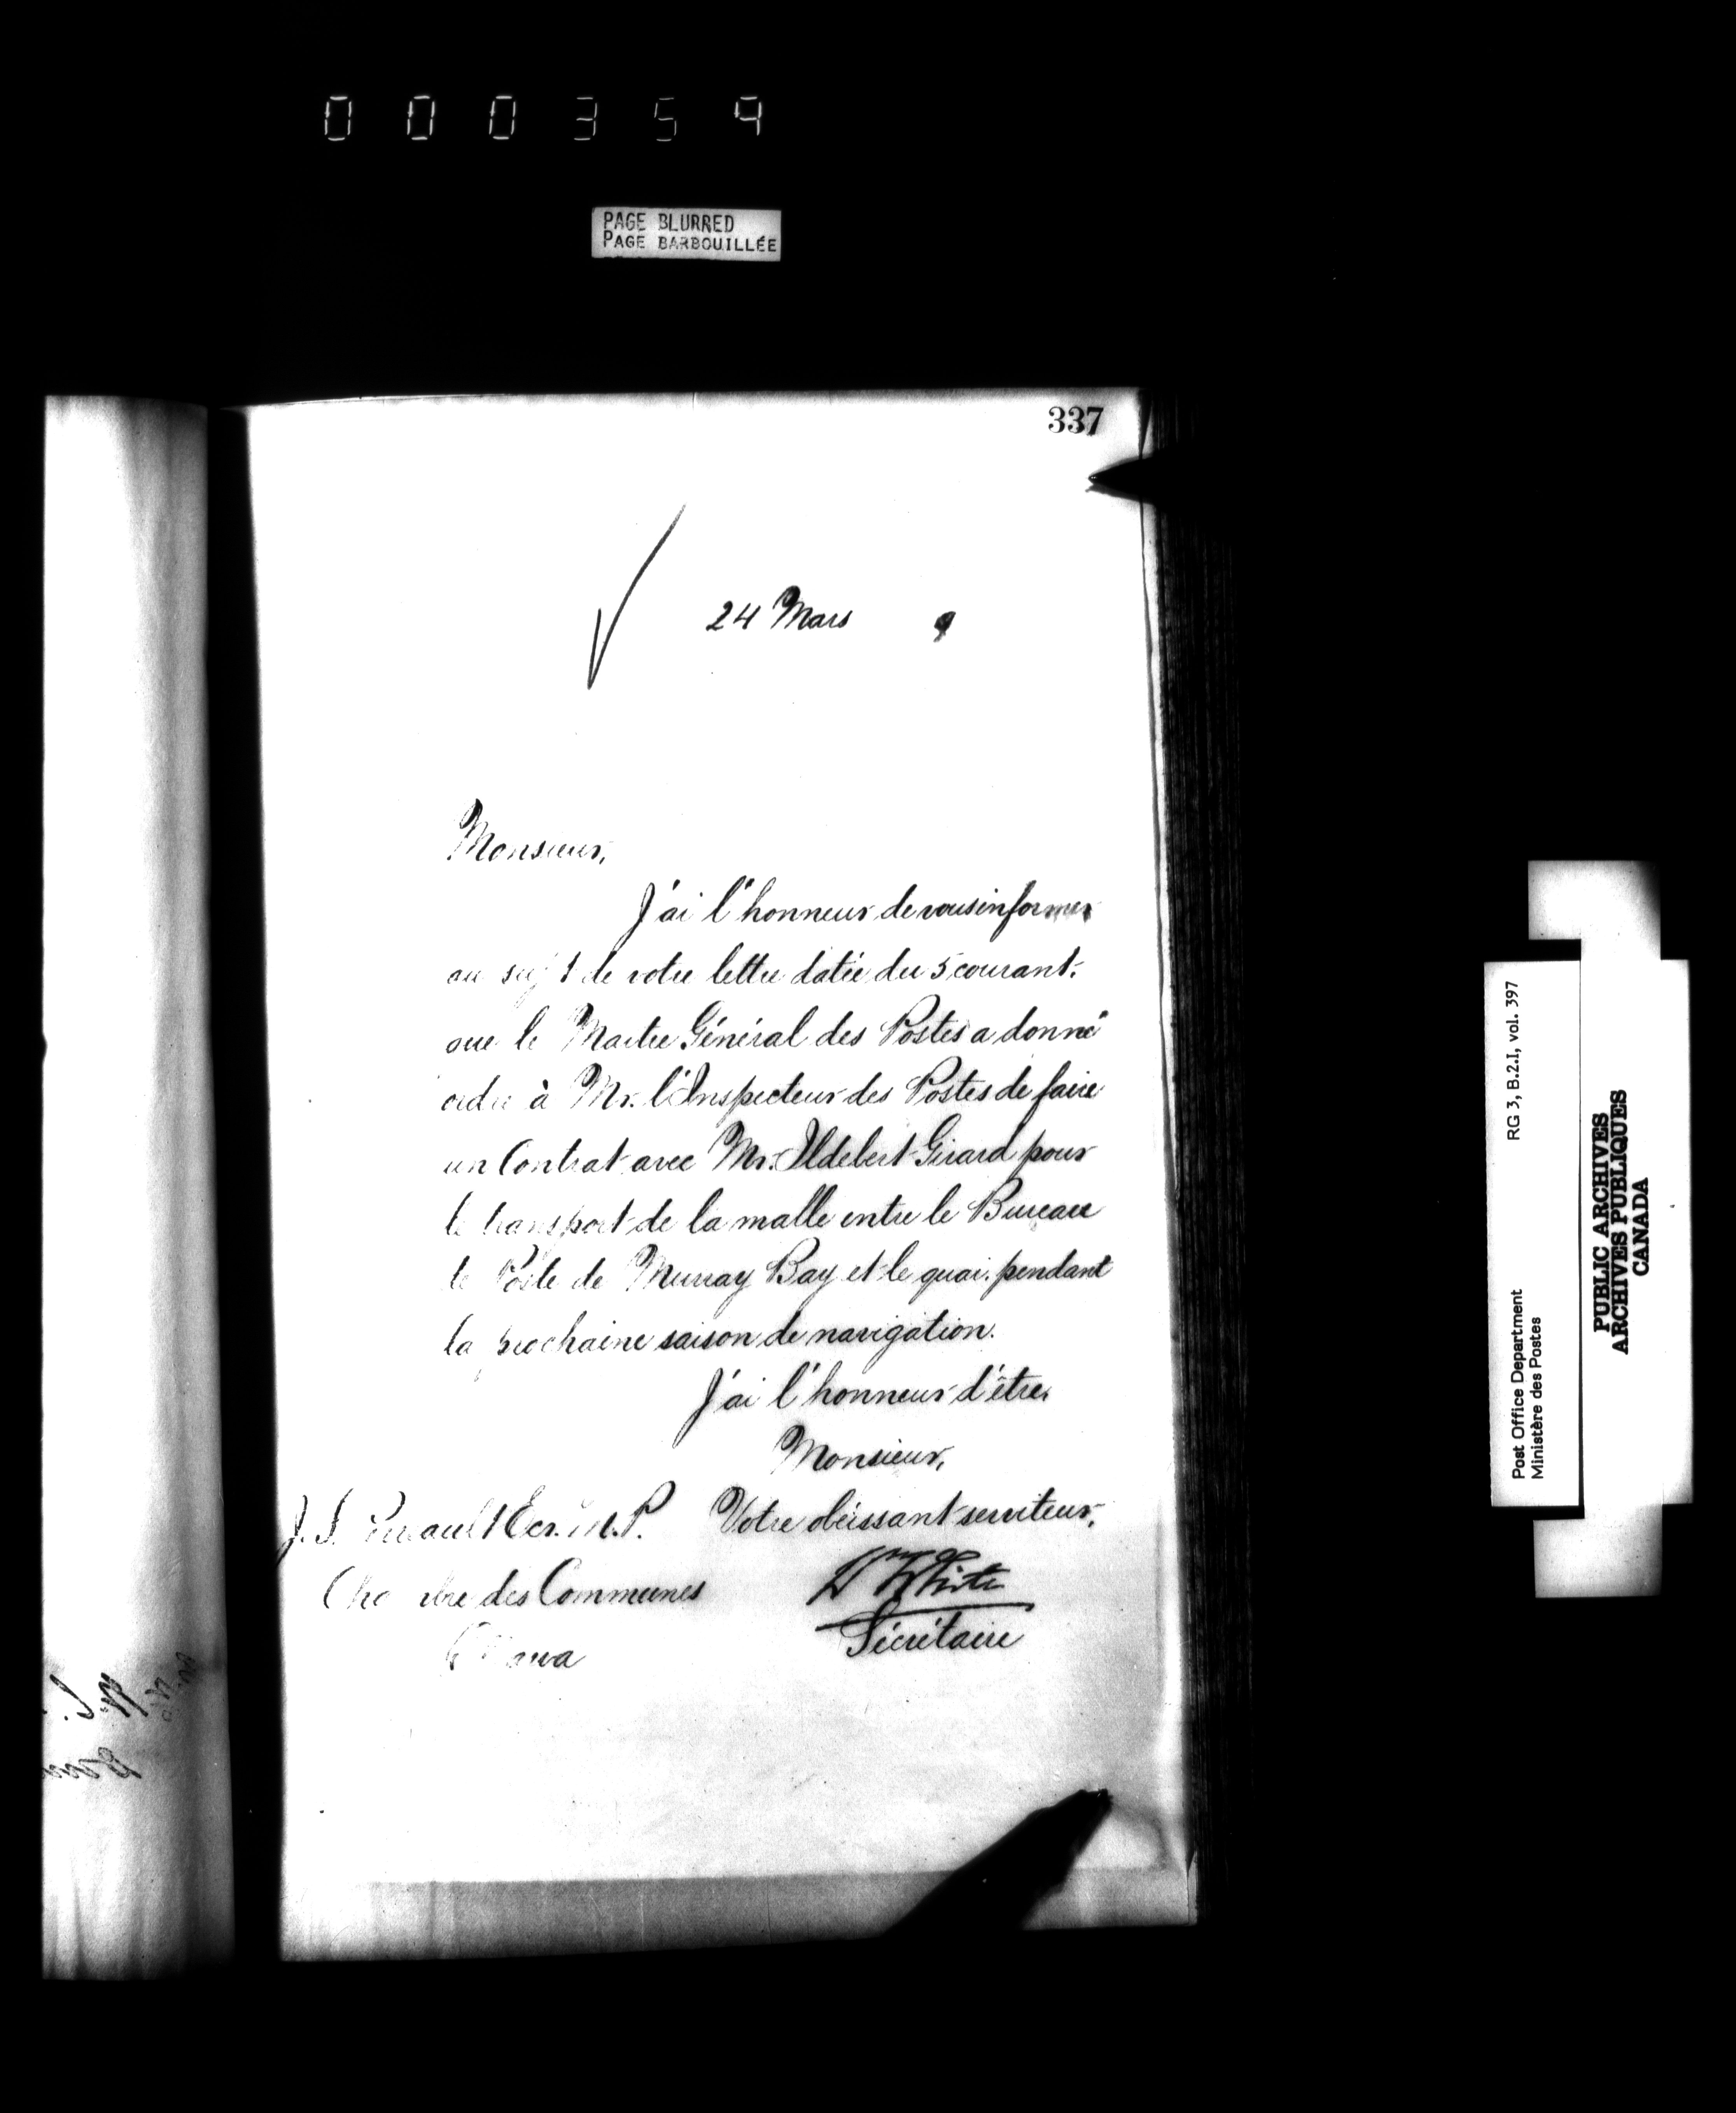 000359
PAGE BLURRED
PAGE BARBOUILLÉE
337
24 Mars 9
Monsieur,
J'ai l'honneur de vous informer
au sujet de votre lettre datée du 5 courant.
que le Maitre Général des Postes a donné
ordre à Mr. l'Inspecteur des Postes de faire
un Contrat avec Mr. Ildebert Girard pour
le transport de la malle entre le Bureau
de Poste de Murray Bay et le quai. pendant
la prochaine saison de navigation.
J'ai l'honneur d'être,
Monsieur,
Votre obéissant serviteur,
J. S. Perault Ecr. M.P.
Chambre des Communes
Ottawa
Wm White
Sécrétaire
Post Office Department
Ministère des Postes
RG 3, B.2.I, vol. 397
PUBLIC ARCHIVES
ARCHIVES PUBLIQUES
CANADA